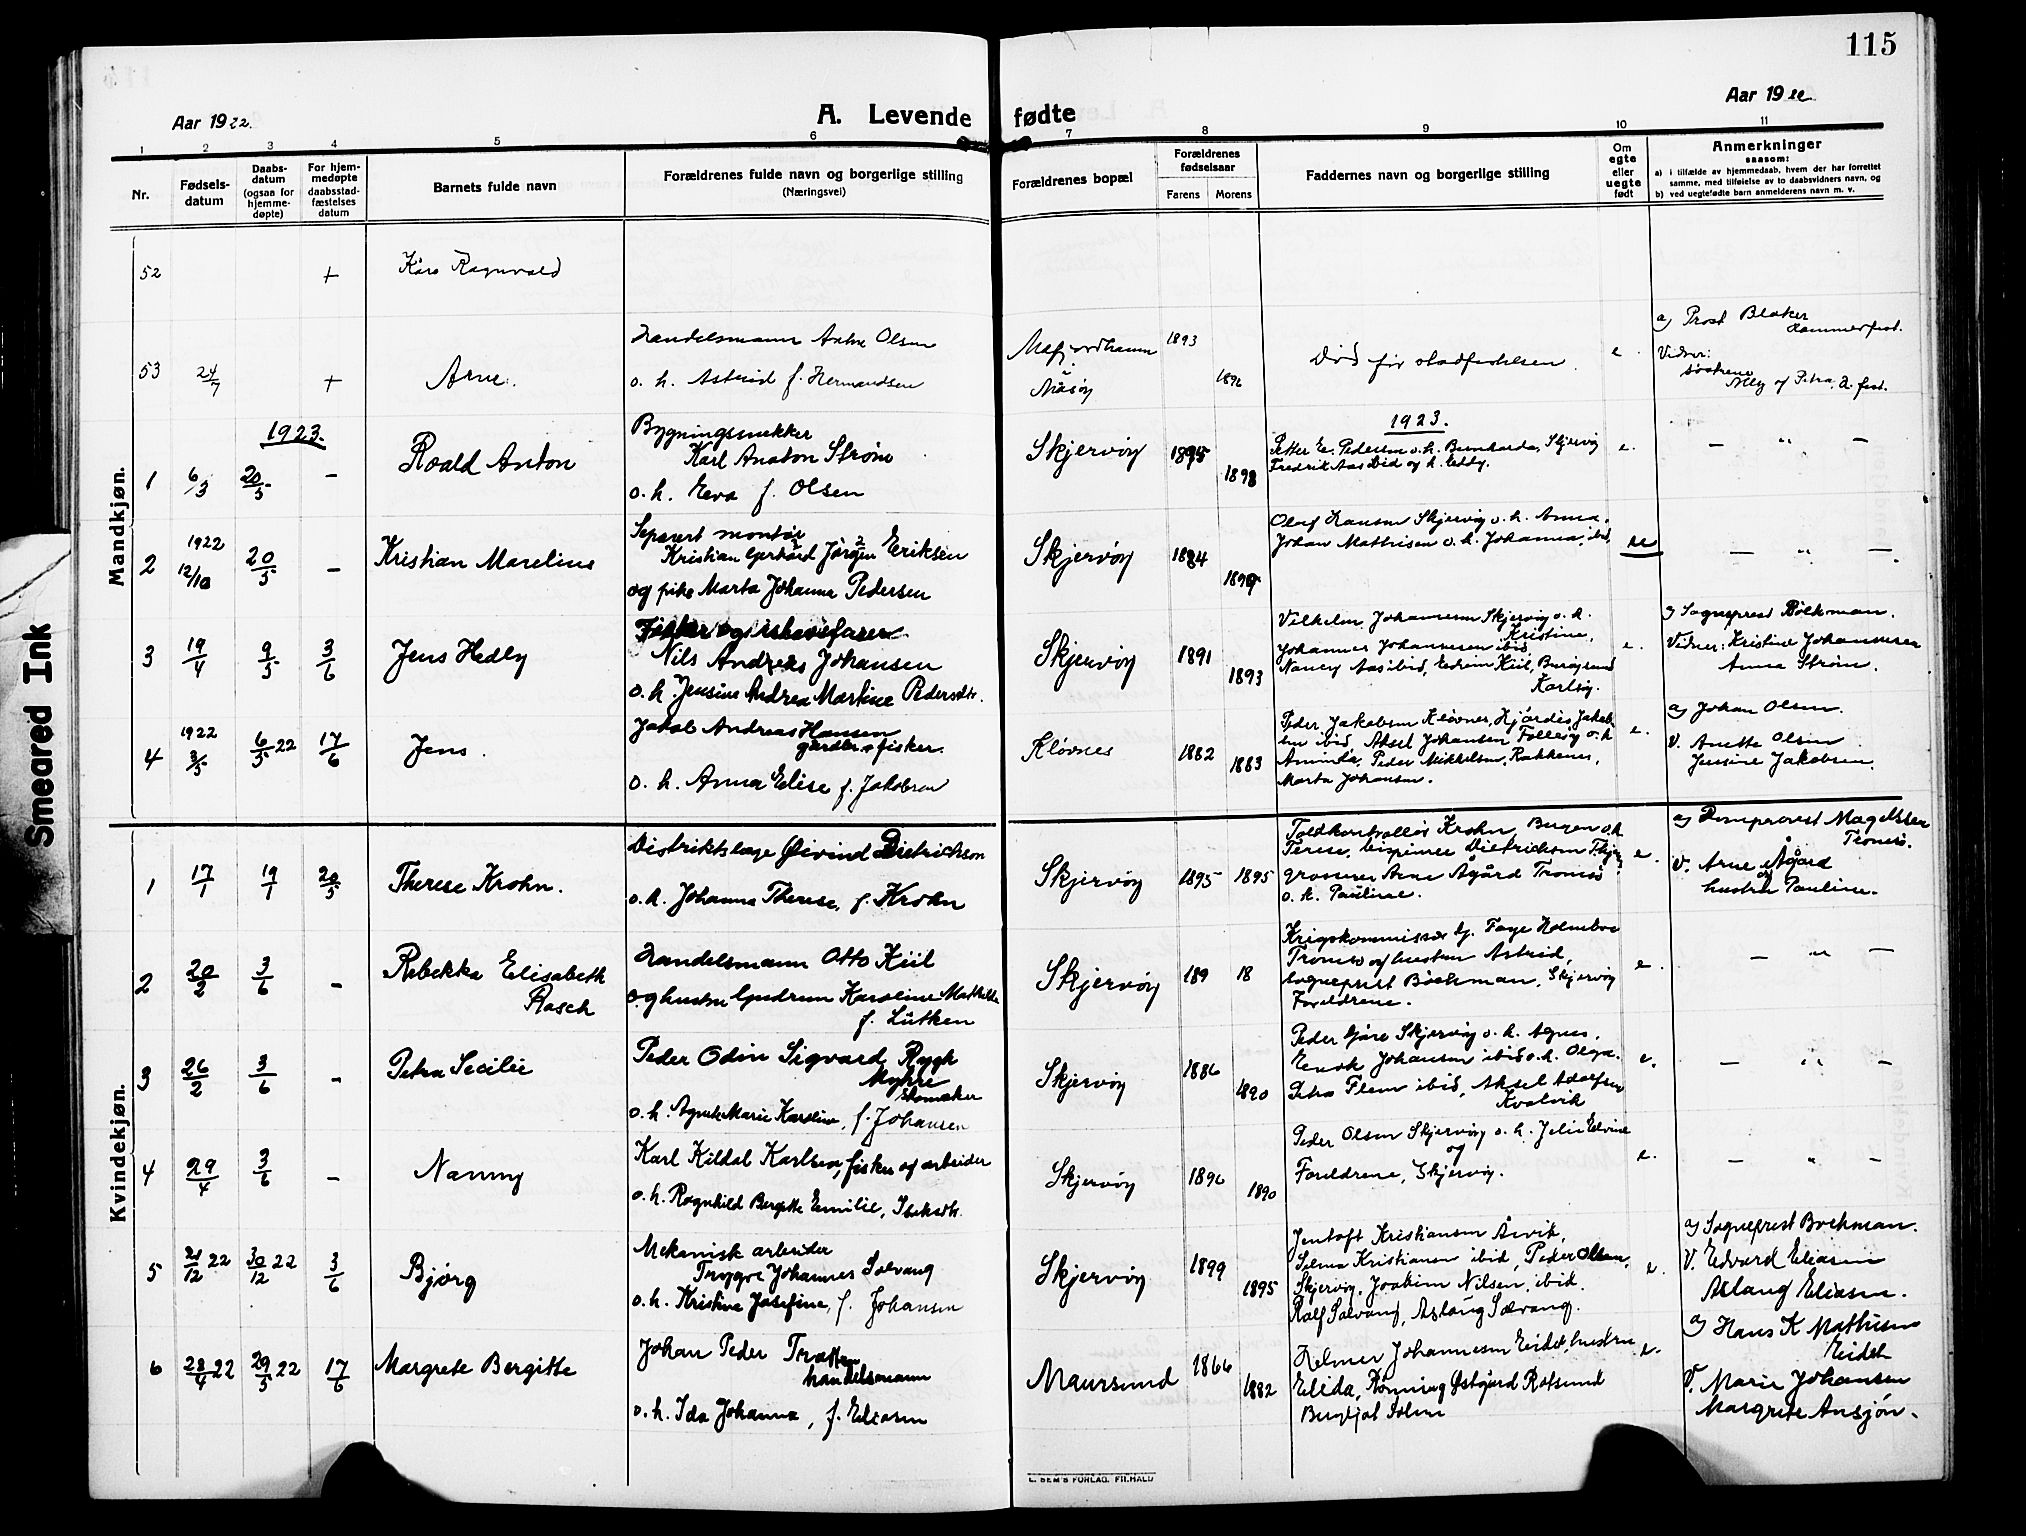 115
Aar 1922.
A. Levende fødte
Aar 1922
1 2 3 4 5 6 7 8 9 10 11
Nr.
Fødsels-
datum
Daabs-
datum
(ogsaa for
hjemme-
døpte)
For hjem-
medøpte
daabsstad-
fæstelses
datum
Barnets fulde navn
Forældrenes fulde navn og borgerlige stilling
(Næringsvei)
Forældrenes bopæl
Forældrenes
fødselsaar
Farens Morens
Faddernes navn og borgerlige stilling
Om
egte
eller
uegte
født
Anmerkninger
saasom:
a) i tilfælde av hjemmedaab, hvem der har forrettet
samme, med tilføielse av to daabsvidners navn, og
b) ved uegtefødte barn anmelderens navn m. v.
Mandkjøn.
52 + Kåre Ragnvald
53 24/7 + Arne.
Handelsmann Anton Olsen
o. h. Astrid f. Hermandsen
Måsøy
1893
1896
Død før stadfestelsen.
e.
a) Prost Blaker
Hammerfest.
Vidner:
søstrene
Nelly og Petra, H.fest.
1923.
1 6/3 20/5 - Roald Anton
Bygningssnekker
Karl Anaton Strøm
o. h. Eva f. Olsen
Skjervøy 1895
1898
1923.
Petter E. Pedersen o. h. Bernharda, Skjervøy
Fredrik Aas ibid og h. Eddy.
e.
— " —
2 1922
12/10 20/5 - Kristian Marelius
Separert montør
Kristian Gerhard Jørgen Eriksen
og pike Marta Johanna Pedersen
Skjervøy 1884
Olaf Hansen Skjervøy o. h. Anna.
Johan Mathisen o. h. Johanna, ibid
ue
— " —
3 19/4 9/5 3/6 Jens Hedly
Fisker og ishavsfarer
Nils Andreas Johansen
o. h. Jensine Andrea Martine Pedersdtr.
Skjervøy 1891
1893
Vilhelm Johannesen Skjervøy o. h.
Kristine,
Johannes Johannesen ibid,
Nancy Aas ibid, Edvin Kiil,
Karlsøy.
e.
a) Sogneprest Bøckman.
Vidner: Kristine Johannesen
Anna Strøm.
4 1922
3/5 6/5 22 17/6 Jens.
Jakob Andreas Hansen
gårdbr. o fisker.
o. h. Anna Elise f. Jakobsen
Kløvnes 1882
1883
Peder Jakobsen Kløvnes, Hjørdis Jakob-
sen ibid, Aksel Johansen Follesøy o. h.
Aminda, Peder Mikkelsen, Rakkenes,
Marta Johansen.
e.
a) Johan Olsen.
V. Anette Olsen
Jensine Jakobsen.
Kvindekjøn.
1 17/1 19/1 20/5 Therese Krohn.
Distriktslæge Øivind Dietrichson
o. h. Johanna Therese, f. Krohn
Skjervøy 1895 1895
Toldkontrollør Krohn, Bergen o. h.
Terese, bispinne Dietrichson
grosserer Arne Ågård Tromsø
o. h. Pauline.
e.
a) Domprovst Magelssen
Tromsø.
V. Arne Ågård
og
hustru Pauline.
2 20/2 3/6 - Rebekka Elisabeth
Rasch
Handelsmann Otto Kiil
og hustru Gudrun Karoline Mathilde
f. Lütken
Skjervøy 189 18
Krigskommissær Hj. Faye Holmboe
Tromsø og hustru Astrid,
sogneprest Bøckman, Skjervøy
Foreldrene.
e.
— " —
3 26/2 3/6 - Petra Secilie
Peder Odin Sigvard Rygh
Myhre
skomaker
o. h. Agnete Marie Karoline, f. Johansen
Skjervøy 1886
1890
Peder Gåre Skjervøy o. h. Agnes,
Enok Johansen ibid o. h. Olga.
Petra Flem ibid, Aksel Adolfsen
Kvalvik
e.
— " —
4 29/4 3/6 - Nanny
Karl Kildal Karlsen, fisker og arbeider
o. h. Ragnhild Bergitte Emilie, Isaksdtr.
Skjervøy 1896
1890
Peder Olsen Skjervøy o. h. Jelie Edvine
og
Foreldrene, Skjervøy.
e.
— " —
5 21/12 22 30/12 22 3/6 Bjørg
Mekanisk arbeider
Trygve Johannes Solvang
o. h. Kristine Josefine, f. Johansen
Skjervøy 1899
1895
Jentoft Kristiansen Årvik,
Selma Kristiansen ibid, Peder Olsen,
Skjervøy, Joakim Nilsen, ibid.
Ralf Solvang, Aslaug Solvang.
e.
a) Sogneprest Bøckman.
V. Edvard Eliasen
Aslaug Eliasen.
6 28/4 22 29/5 22 17/6 Margrete Bergitte
Johan Peder Trætten
handelsmann
o. h. Ida Johanna, f. Eliasen
Maursund 1866
1882
Helmer Johannesen Eidet, hustru
Elida, Rønning Østgård Rotsund
Bergljot Solem
e.
a) Hans K Mathisen
Eidet
V. Marie Johansen
Margrete Ansjøn.
E. SEM'S FORLAG, FR.HALD
Smeared Ink